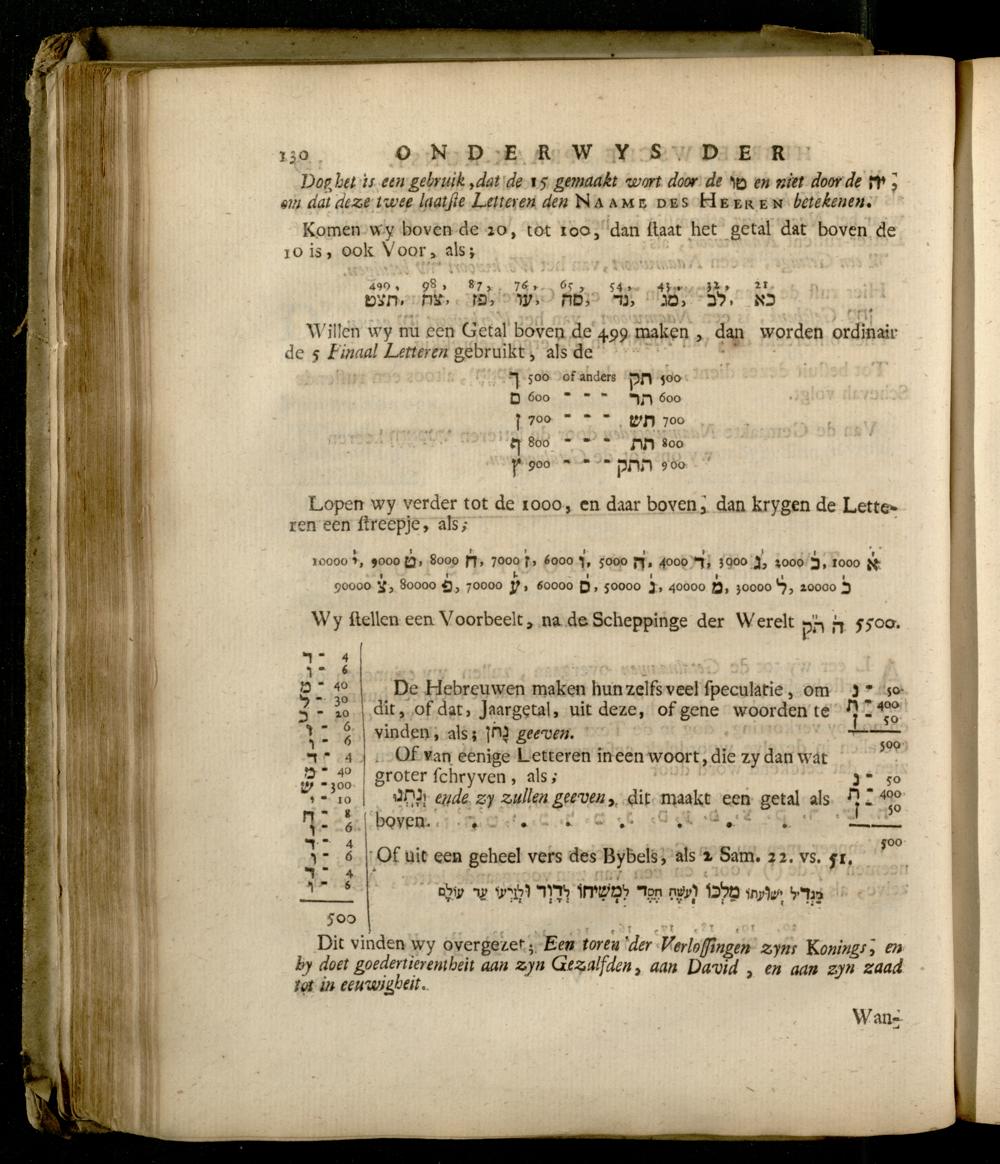 130 ONDERWYS DER
Dog het is een gebruik, dat de 15 gemaakt wort door de טו en niet door de יה;
om dat deze twee laatſte Letteren den NAAME DES HEEREN betekenen.
Komen wy boven de 20, tot 100, dan ſtaat het getal dat boven de
10 is, ook Voor, als;
499, 98, 87, 76, 65, 54, 43, 32, 21
כא לב, מג, נד, סה, עו, פז, צח, תצט,
Willen wy nu een Getal boven de 499 maken, dan worden ordinair
de 5 Finaal Letteren gebruikt, als de
ך 500 of anders תק 500
ם 600 - - - תר 600
ן 700 - - - תש 700
ף 800 - - - תת 800
ץ 900 - - - תתק 900
Lopen wy verder tot de 1000, en daar boven, dan krygen de Lette-
ren een ſtreepje, als;
10000 י, 9000 ט, 8000 ח, 7000 ז, 6000 ו, 5000 ה, 4000 ד, 3000 ג, 2000 ב, 1000 א
90000 צ, 80000 פ, 70000 ע, 60000 ס, 50000 נ, 40000 מ, 30000 ל, 20000 כ
Wy ſtellen een Voorbeelt, na de Scheppinge der Werelt ה הק 5500.
ד - 4
ו - 6
מ - 40
ל - 30
כ - 20
ו - 6
ו - 6
ד - 4
מ - 40
ש - 300
י - 10
ח - 8
ו - 6
ד - 4
ו - 6
ד - 4
ו - 6
500
De Hebreuwen maken hun zelfs veel ſpeculatie, om
dit, of dat, Jaargetal, uit deze, of gene woorden te
vinden, als; נָתַן geeven.
נ - 50
ת - 400
ן - 50
500
Of van eenige Letteren in een woort, die zy dan wat
groter ſchryven, als;
וְנָתְנוּ ende zy zullen geeven, dit maakt een getal als
boven.
נ - 50
ת - 400
ן 50
500
Of uit een geheel vers des Bybels, als 2 Sam. 22. vs. 51.
מִגְדִּיל יְשׁוּעוֹתו מַלְכּוֹ וְעֹשֶׂה חֶסֶד לִמְשִׁיחוֹ לְדָוִד וּלְזַרְעוֹ עַד עוֹלָם
Dit vinden wy overgezet; Een toren der Verloſſingen zyns Konings, en
hy doet goedertierentheit aan zyn Gezalfden, aan David, en aan zyn zaad
tot in eeuwigheit.
Wan-